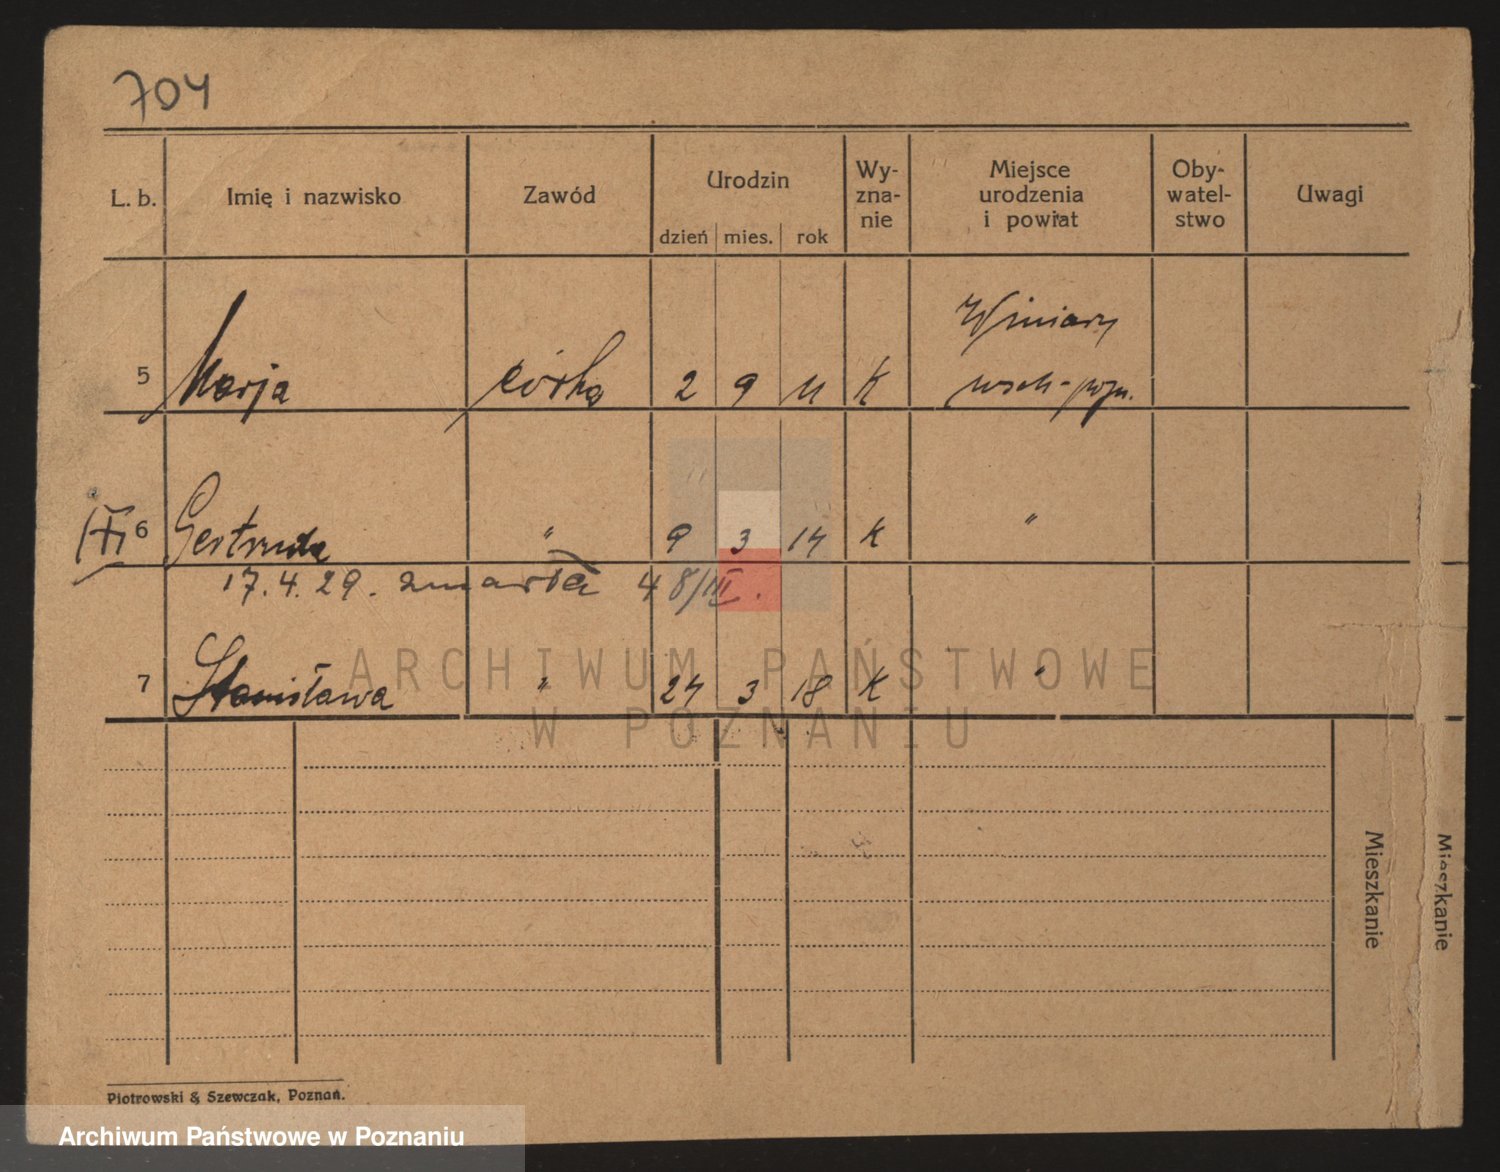 704
L. b. Imię i nazwisko Zawód Urodzin dzień mies. rok Wy-zna-nie Miejsce urodzenia i powiat Oby-watel-stwo Uwagi
Winiary
5 Marja córka 2 9 11 K wsch-pozn.
6 Gertruda " 9 3 14 K "
17.4.29. zmarła 48/III.
7 Stanisława " 24 3 18 K "
ARCHIWUM PAŃSTWOWE
W POZNANIU
Mieszkanie
Mieszkanie
Piotrowski & Szewczak, Poznań.
Archiwum Państwowe w Poznaniu